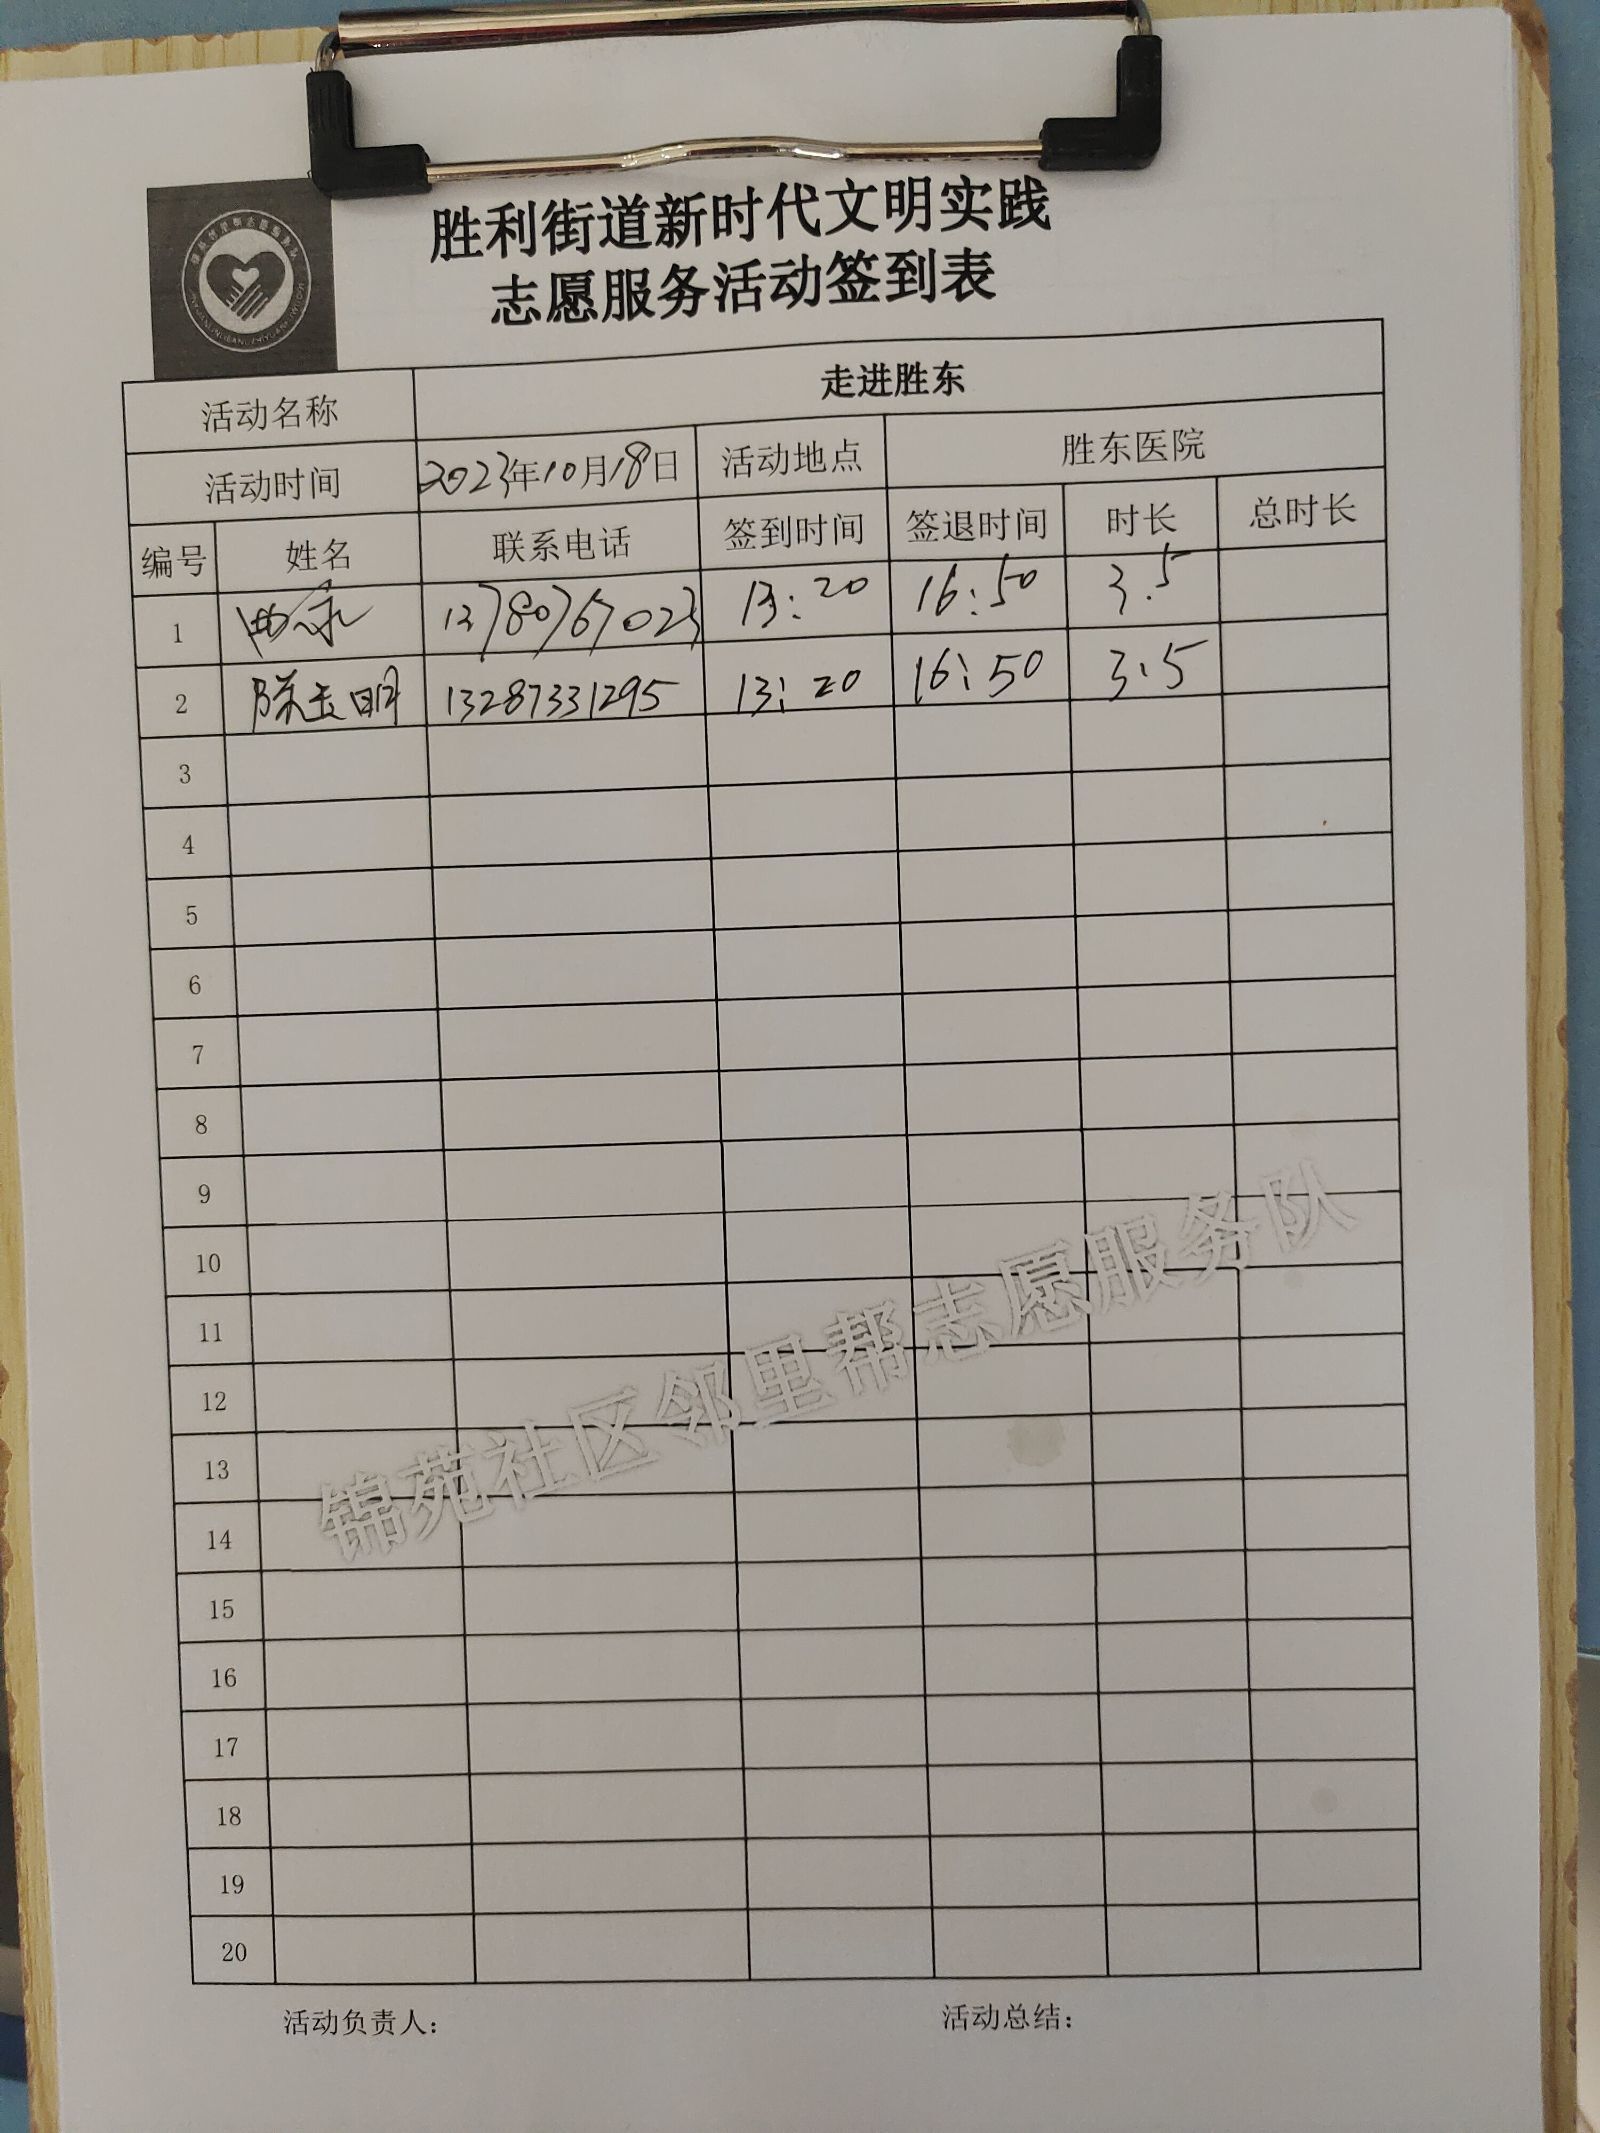 胜利街道新时代文明实践
志愿服务活动签到表
活动名称 走进胜东
活动时间 2023年10月18日 活动地点 胜东医院
编号 姓名 联系电话 签到时间 签退时间 时长 总时长
1 13780767023 13:20 16:50 3.5
2 13287331295 13:20 16:50 3.5
3
4
5
6
7
8
9
10
11
12
13
14
15
16
17
18
19
20
锦苑社区邻里帮志愿服务队
活动负责人： 活动总结：